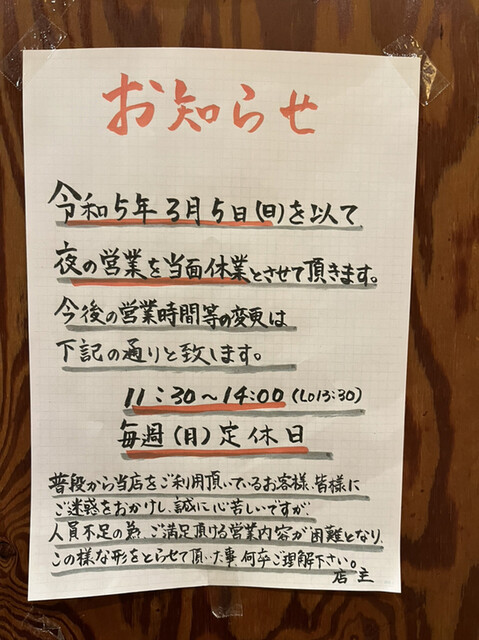 お知らせ
令和5年3月5日(日)を以て
夜の営業を当面休業とさせて頂きます。
今後の営業時間等の変更は
下記の通りと致します。
11:30～14:00(Lo13:30)
毎週(月)定休日
普段から当店をご利用頂いているお客様、皆様に
ご迷惑をおかけし、誠に心苦しいですが
人員不足の為、ご満足頂ける営業内容が困難となり、
この様な形をとらせて頂いた事、何卒ご理解下さい。
店主